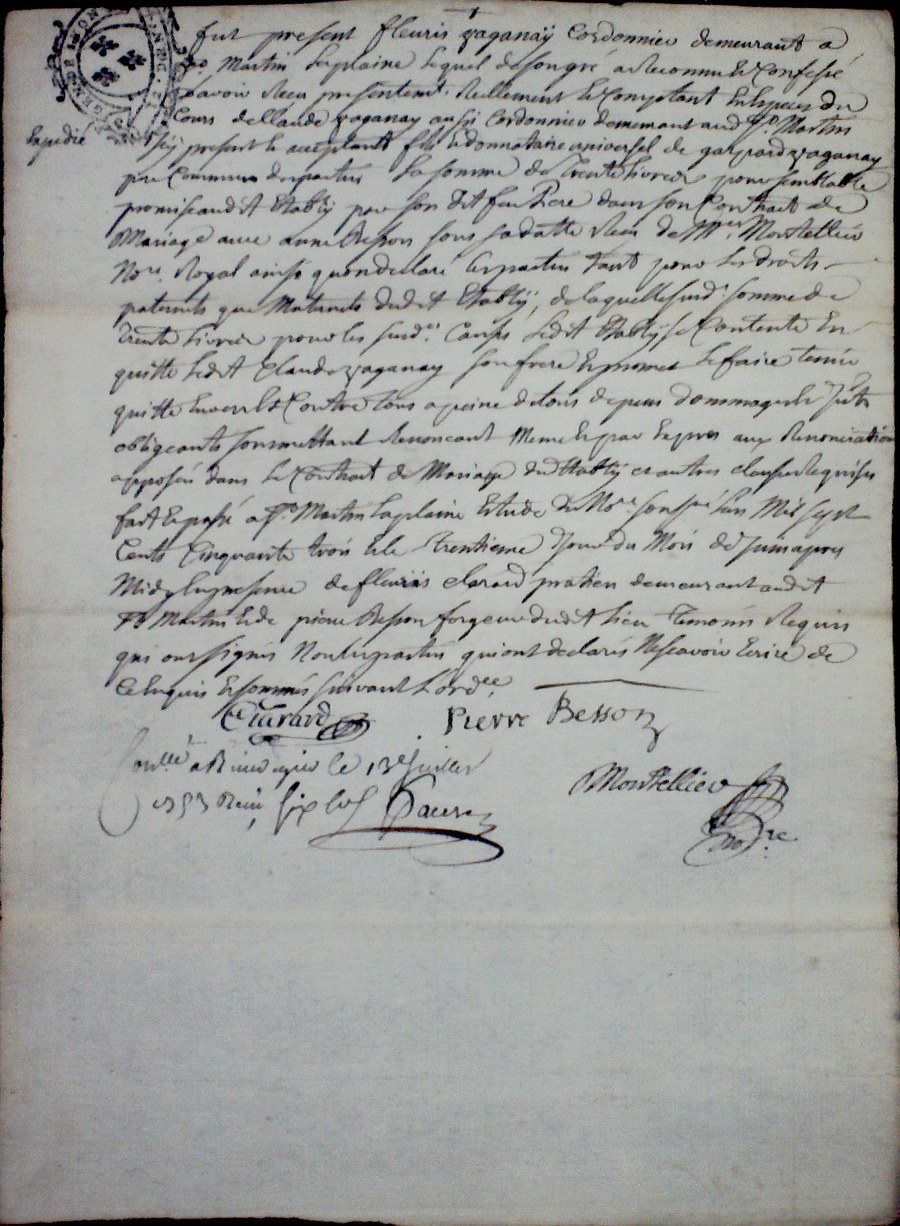 fut present fleuris vaganaÿ Cordonnier demeurant a
St. Martin Laplaine Lequel de son gré a Reconnu & Confessé
avoir Receu presentemt. Reellement & Comptant En Especes du
Cours de Claude vaganay aussi Cordonnier demeurant aud St. Martin
Expedié
Icy present & acceptant fils & donnataire universel de gaspard vaganay
pere Commun des parties La somme de Trente Livres pour semblable
promise audit Etablÿ par son dit feu Pere dans son Contrait de
Mariage avec anne Besson sous sa datte Receu de Me. Montellier
Nore. Royal ainsi quon declaré les parties Tant pour Les droits
paternels que Maternels dudit Etablÿ, de laquelle susd. somme de
Trente Livres pour les susd. Causes Ledit Etablÿ se Contente En
quitte Ledit Claude vaganay son frere Et promet Le faire Tenir
quitte Envers & Contre tous a peine de tous depens dommages & Jnts
obligeants soumettant Renoncant Meme Et par Expres aux Renonciations
apposées dans Le Contrait de Mariage dud Etablÿ et autres clauses Requises
fait & passé a St. Martin Laplaine Etude du Nore. soussné Lan Mil Sept
Cents Cinquante trois & le Trentieme Jour du Mois de Juin apres
Midy En presence de fleuris clarard praticien demeurant audit
St Martin & de pierre Besson forgeur dudit Lieu Temoins Requis
qui ont signés Non les parties qui ont declarés Ne scavoir Ecrire de
Ce Enquis & sommés suivant Lordce.
Clarard Pierre Besson
Conllé a Rive de gier le 13e Juillet
1753 Receu six sols
Montellier
nore.